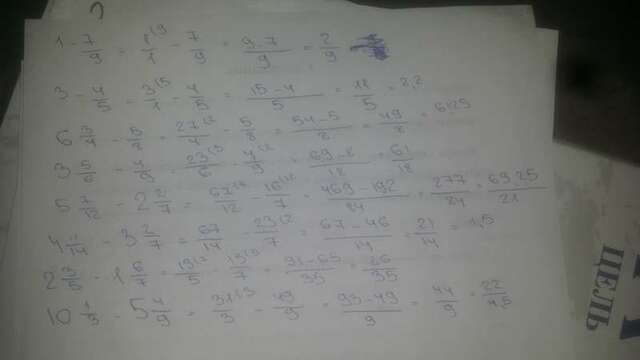 1 - 7/9 = 1/1 - 7/9 = 9-7/9 = 2/9
3 - 4/5 = 3/1 - 4/5 = 15-4/5 = 11/5 = 2,2
6 3/4 - 5/8 = 27/4 - 5/8 = 54-5/8 = 49/8 = 6,125
3 5/6 - 4/9 = 23/6 - 4/9 = 69-8/18 = 61/18
5 7/12 - 2 2/7 = 67/12 - 16/7 = 469-192/84 = 277/24 = 69,25/21
4 11/14 - 3 2/7 = 67/14 - 23/7 = 67-46/14 = 21/14 = 1,5
2 3/5 - 1 6/7 = 13/5 - 13/7 = 91-65/35 = 26/35
10 1/3 - 5 4/9 = 31/3 - 49/9 = 93-49/9 = 44/9 = 22/4,5
ЦЕЛЬ